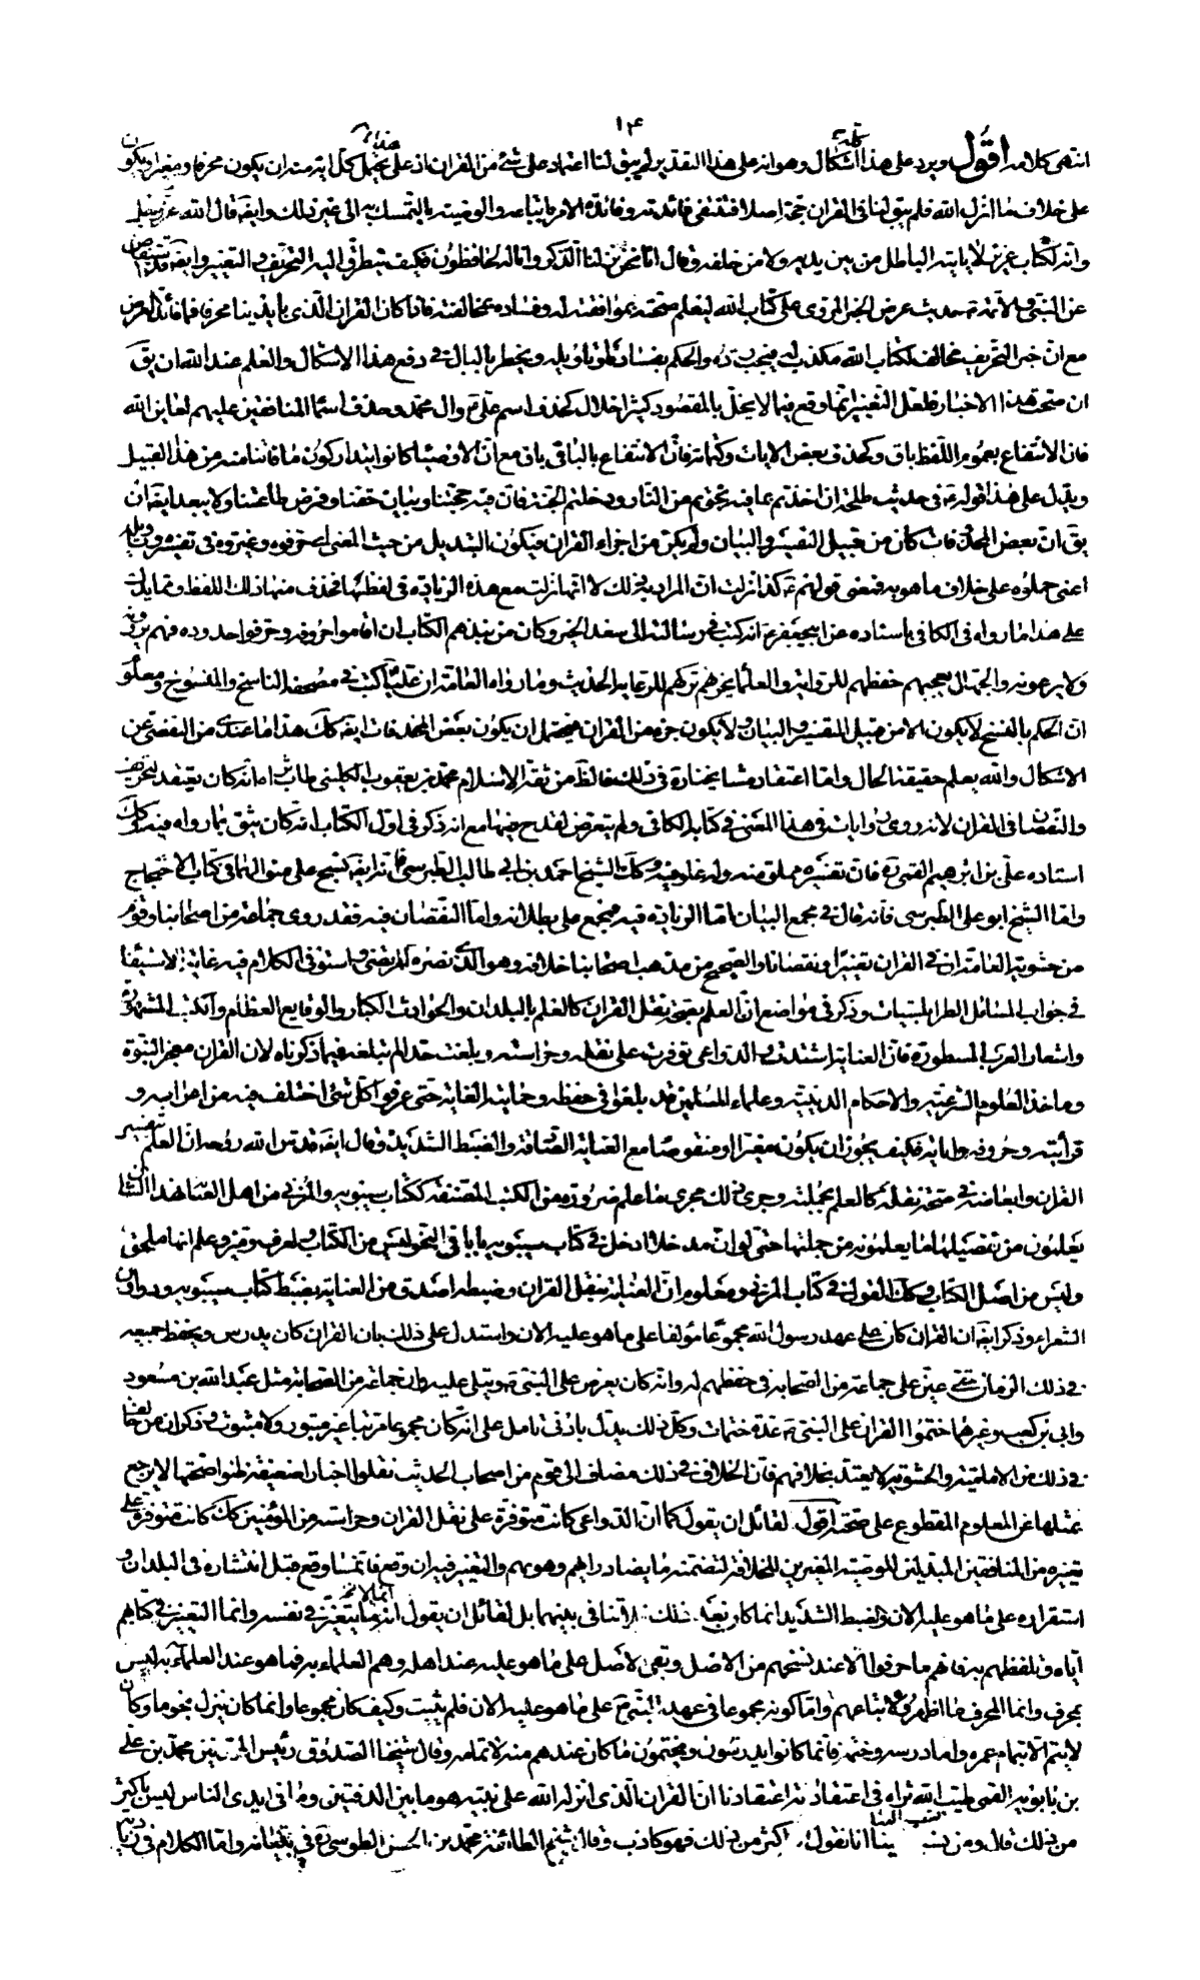 ١٤
انتهى كلامه اقول ويرد على هذا كله اشكال وهو انه على هذا التقدير لم يبق لنا اعتماد على شئ من القران اذ على هذا يحتمل كل اية منه ان يكون محرفا ومغيرا ويكون
على خلاف ما انزل الله فلم يبق لنا في القران حجة اصلا فتنتفى فائدته وفائدة الامر باتباعه والوصية بالتمسك به الى غير ذلك وايضا قال الله عز وجل
وانه لكتاب عزيز لا ياتيه الباطل من بين يديه ولا من خلفه وقال انا نحن نزلنا الذكر وانا له لحافظون فكيف يتطرق اليه التحريف والتغيير وايضا قد استفاض
عن النبي والائمة حديث عرض الخبر المروى على كتاب الله ليعلم صحته بموافقته له وفساده بمخالفته فاذا كان القران الذى بايدينا محرفا فما فائدة العرض
مع ان خبر التحريف مخالف لكتاب الله مكذب له فيجب رده والحكم بفساده او تاويله ويخطر بالبال في دفع هذا الاشكال والعلم عند الله ان يق
ان صحت هذه الاخبار فلعل التغيير انما وقع فيما لا يخل بالمقصود كثير اخلال كحذف اسم علي وال محمد وحذف اسماء المنافقين عليهم لعاين الله
فان الانتفاع بعموم اللفظ باق وكحذف بعض الايات وكتمانه فان الانتفاع بالباقى باق مع ان الاوصياء كانوا يتداركون ما فاتنا منه من هذا القبيل
ويدل على هذا قوله في حديث طلحة ان اخذتم بما فيه نجوتم من النار ودخلتم الجنة فان فيه حجتنا وبيان حقنا وفرض طاعتنا ولا يبعد ايضا ان
يق ان بعض المحذوفات كان من قبيل التفسير والبيان ولم يكن من اجزاء القران فيكون التبديل من حيث المعنى اى حرفوه وغيروه في تفسيره وتاويله
اعنى حملوه على خلاف ما هو به فمعنى قولهم كذا نزلت ان المراد به ذلك لا انها نزلت مع هذه الزيادة في لفظها فحذف منها ذلك اللفظ ومما يدل
على هذا ما رواه في الكافي باسناده عن ابى جعفر انه كتب في رسالته الى سعد الخير وكان من نبذهم الكتاب ان اقاموا حروفه وحرفوا حدوده فهم يروونه
ولا يرعونه والجهال يعجبهم حفظهم للرواية والعلماء يحزنهم تركهم للرعاية الحديث وما رواه العامة ان عليا كتب في مصحفه الناسخ والمنسوخ ومعلوم
ان الحكم بالنسخ لا يكون الا من قبيل التفسير والبيان ولا يكون جزء من القران فيحتمل ان يكون بعض المحذوفات ايضا كك هذا ما عندى من التفصى عن
الاشكال والله يعلم حقيقة الحال واما اعتقاد مشايخنا ره في ذلك فالظ من ثقة الاسلام محمد بن يعقوب الكلينى طاب ثراه انه كان يعتقد التحريف
والنقصان في القران لانه روى روايات في هذا المعنى في كتابه الكافي ولم يتعرض لقدح فيها مع انه ذكر في اول الكتاب انه كان يثق بما رواه فيه وكك
استاده على بن ابرهيم القمى ره فان تفسيره مملو منه وله غلو فيه وكك الشيخ احمد بن ابى طالب الطبرسى فانه ايضا نسج على منوالهما في كتاب الاحتجاج
واما الشيخ ابو على الطبرسى فانه قال في مجمع البيان اما الزيادة فيه فمجمع على بطلانه واما النقصان فيه فقد روى جماعة من اصحابنا وقوم
من حشوية العامة ان في القران تغييرا ونقصانا والصحيح من مذهب اصحابنا خلافه وهو الذى نصره المرتضى واستوفى الكلام فيه غاية الاستيفاء
في جواب المسائل الطرابلسيات وذكر في مواضع ان العلم بصحة نقل القران كالعلم بالبلدان والحوادث الكبار والوقايع العظام والكتب المشهورة
واشعار العرب المسطورة فان العناية اشتدت والدواعى توفرت على نقله وحراسته وبلغت حدا لم تبلغه فيما ذكرناه لان القران معجز النبوة
وماخذ العلوم الشرعية والاحكام الدينية وعلماء المسلمين قد بلغوا في حفظه وحمايته الغاية حتى عرفوا كل شئ اختلف فيه من اعرابه و
قرائته وحروفه واياته فكيف يجوز ان يكون مغيرا او منقوصا مع العناية الصادقة والضبط الشديد وقال ايضا قدس الله روحه ان العلم بتفسير
القران وابعاضه في صحة نقله كالعلم بجملته وجرى ذلك مجرى ما علم ضرورة من الكتب المصنفة ككتاب سيبويه والمزنى من اهل العناية بهذا الشان
يعلمون من تفصيلهما ما يعلمونه من جملتها حتى لو ان مدخلا ادخل في كتاب سيبويه بابا في النحو ليس من الكتاب لعرف وميز وعلم انها ملحق
وليس من اصل الكتاب وكك القول في كتاب المزنى ومعلوم ان العناية بنقل القران وضبطه اصدق من العناية بضبط كتاب سيبويه ودواوين
الشعراء وذكر ايضا ان القران كان على عهد رسول الله مجموعا مؤلفا على ما هو عليه الان واستدل على ذلك بان القران كان يدرس ويحفظ جميعه
في ذلك الزمان حتى عين على جماعة من الصحابة في حفظهم له وانه كان يعرض على النبي ويتلى عليه وان جماعة من الصحابة مثل عبد الله بن مسعود
وابى بن كعب وغيرهما ختموا القران على النبي عدة ختمات وكل ذلك يدل بادنى تامل على انه كان مجموعا مرتبا غير مبتور ولا مبثوث وذكر ان من خالف
في ذلك من الامامية والحشوية لا يعتد بخلافهم فان الخلاف في ذلك مضاف الى قوم من اصحاب الحديث نقلوا اخبارا ضعيفة ظنوا صحتها لا يرجع
بمثلها عن المعلوم المقطوع على صحته اقول لقائل ان يقول كما ان الدواعى كانت متوفرة على نقل القران وحراسته من المؤمنين كك كانت متوفرة على
تغييره من المنافقين المبدلين للوصية المغيرين للخلافة لتضمنه ما يضاد رايهم وهويهم والتغيير فيه ان وقع فانما وقع قبل انتشاره في البلدان و
استقراره على ما هو عليه الان والضبط الشديد انما كان بعد ذلك فلا تنافى بينهما بل لقائل ان يقول انه ما تغير في نفسه وانما التغيير في كتابتهم
اياه وتلفظهم به فانهم ما حرفوا الا عند نسخهم من الاصل وبقى الاصل على ما هو عليه عند اهله وهم العلماء به فما هو عند العلماء به ليس
بمحرف وانما المحرف ما اظهروه لاتباعهم واما كونه مجموعا في عهد النبي على ما هو عليه الان فلم يثبت وكيف كان مجموعا وانما كان ينزل نجوما وكان
لا يتم الا بتمام عمره واما درسه وختمه فانما كانوا يدرسون ويختمون ما كان عندهم منه لا تمامه وقال شيخنا الصدوق رئيس المحدثين محمد بن على
بن بابويه القمى طيب الله ثراه في اعتقاداته اعتقادنا ان القران الذى انزله الله على نبيه هو ما بين الدفتين وما في ايدى الناس ليس باكثر
من ذلك قال ومن نسب الينا انا نقول اكثر من ذلك فهو كاذب وقال شيخ الطائفة محمد بن الحسن الطوسى ره في تبيانه واما الكلام في زيادته